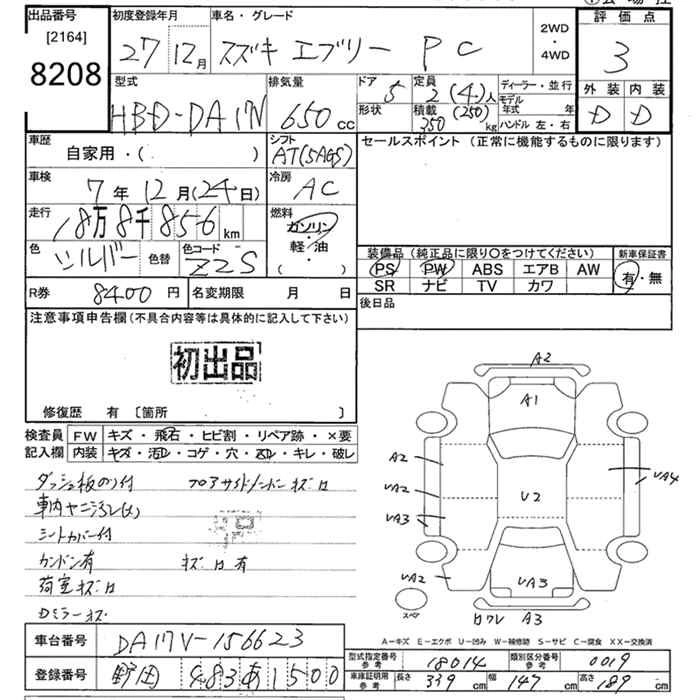 出品番号
[2164]
8208
初度登録年月
27 12月
車名・グレード
スズキ エブリー PC
2WD
・
4WD
評価点
3
外装 内装
D D
型式
HBD-DA17V
排気量
650 cc
ドア
5
形状
定員
2 (4)人
積載 (250)
350 kg
ディーラー・並行
モデル年式 年
ハンドル 左・右
車歴
自家用・( )
シフト
AT(5AGS)
セールスポイント (正常に機能するものに限ります)
車検
7年12月(24日)
冷房
AC
走行
18万8千856 km
燃料
ガソリン
軽・油
・
( )
色
シルバー
色替
色コード
Z2S
装備品 (純正品に限り○をつけてください)
PS PW ABS エアB AW
SR ナビ TV カワ
新車保証書
有・無
R券 8400円
名変期限 月 日
後日品
注意事項申告欄(不具合内容等は具体的に記入して下さい)
初出品
修復歴 有 〔箇所 〕
検査員記入欄
FW キズ・飛石・ヒビ割・リペア跡・×要
内装 キズ・汚D・コゲ・穴・ズD・キレ・破レ
ダッシュ板のり付
車内ヤニ
シートカバー付
キズロ有
荷室キズロ
Dミラーキズ
A2
A1
A2
UA2
UA3
U2
UA4
UA2
UA3
スペア
A3
A-キズ E-エクボ U-凹み W-補修跡 S-サビ C-腐食 XX-交換済
車台番号 DA17V-156623
登録番号 野田 483あ1500
型式指定番号
参考
18014
類別区分番号
参考
0019
車庫証明用
参考
長さ 339cm 幅 147cm 高さ 189cm